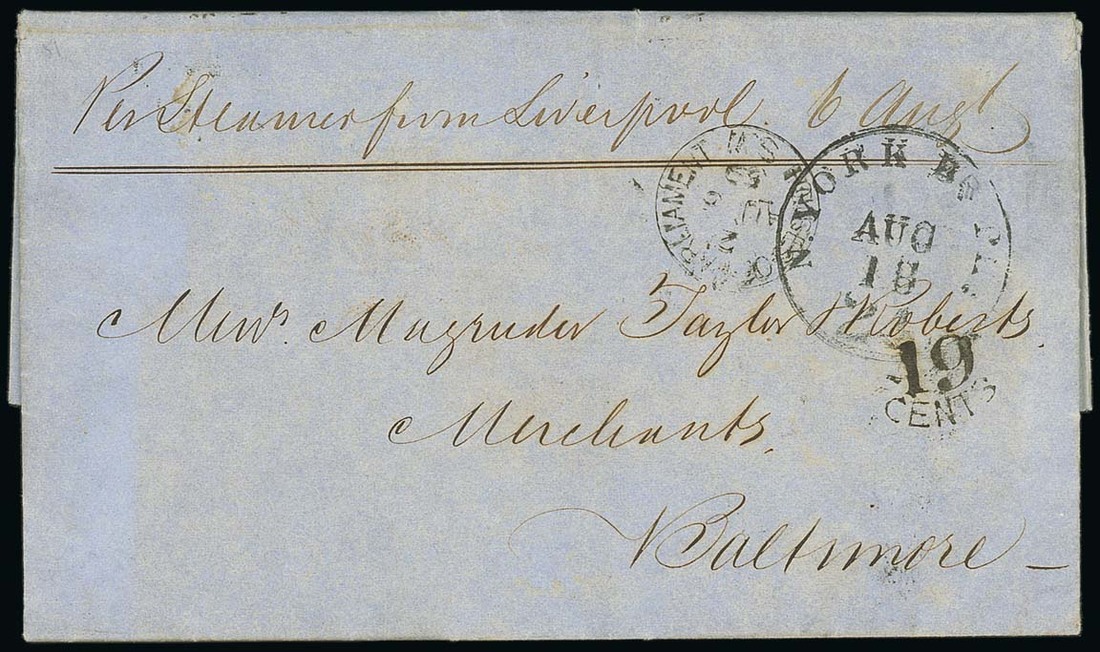 Per Steamer from Liverpool. 6 Augt
PARLIAMENT
N. YORK BR
AUG
18
19
CENTS
Messrs Magruder Taylor & Roberts.
Merchants.
Baltimore —